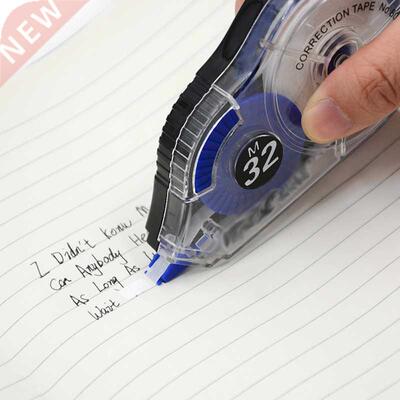 NEW
CORRECTION TAPE No
M
32
I Didn't Know M
Can Anybody He
As Long As
Wait